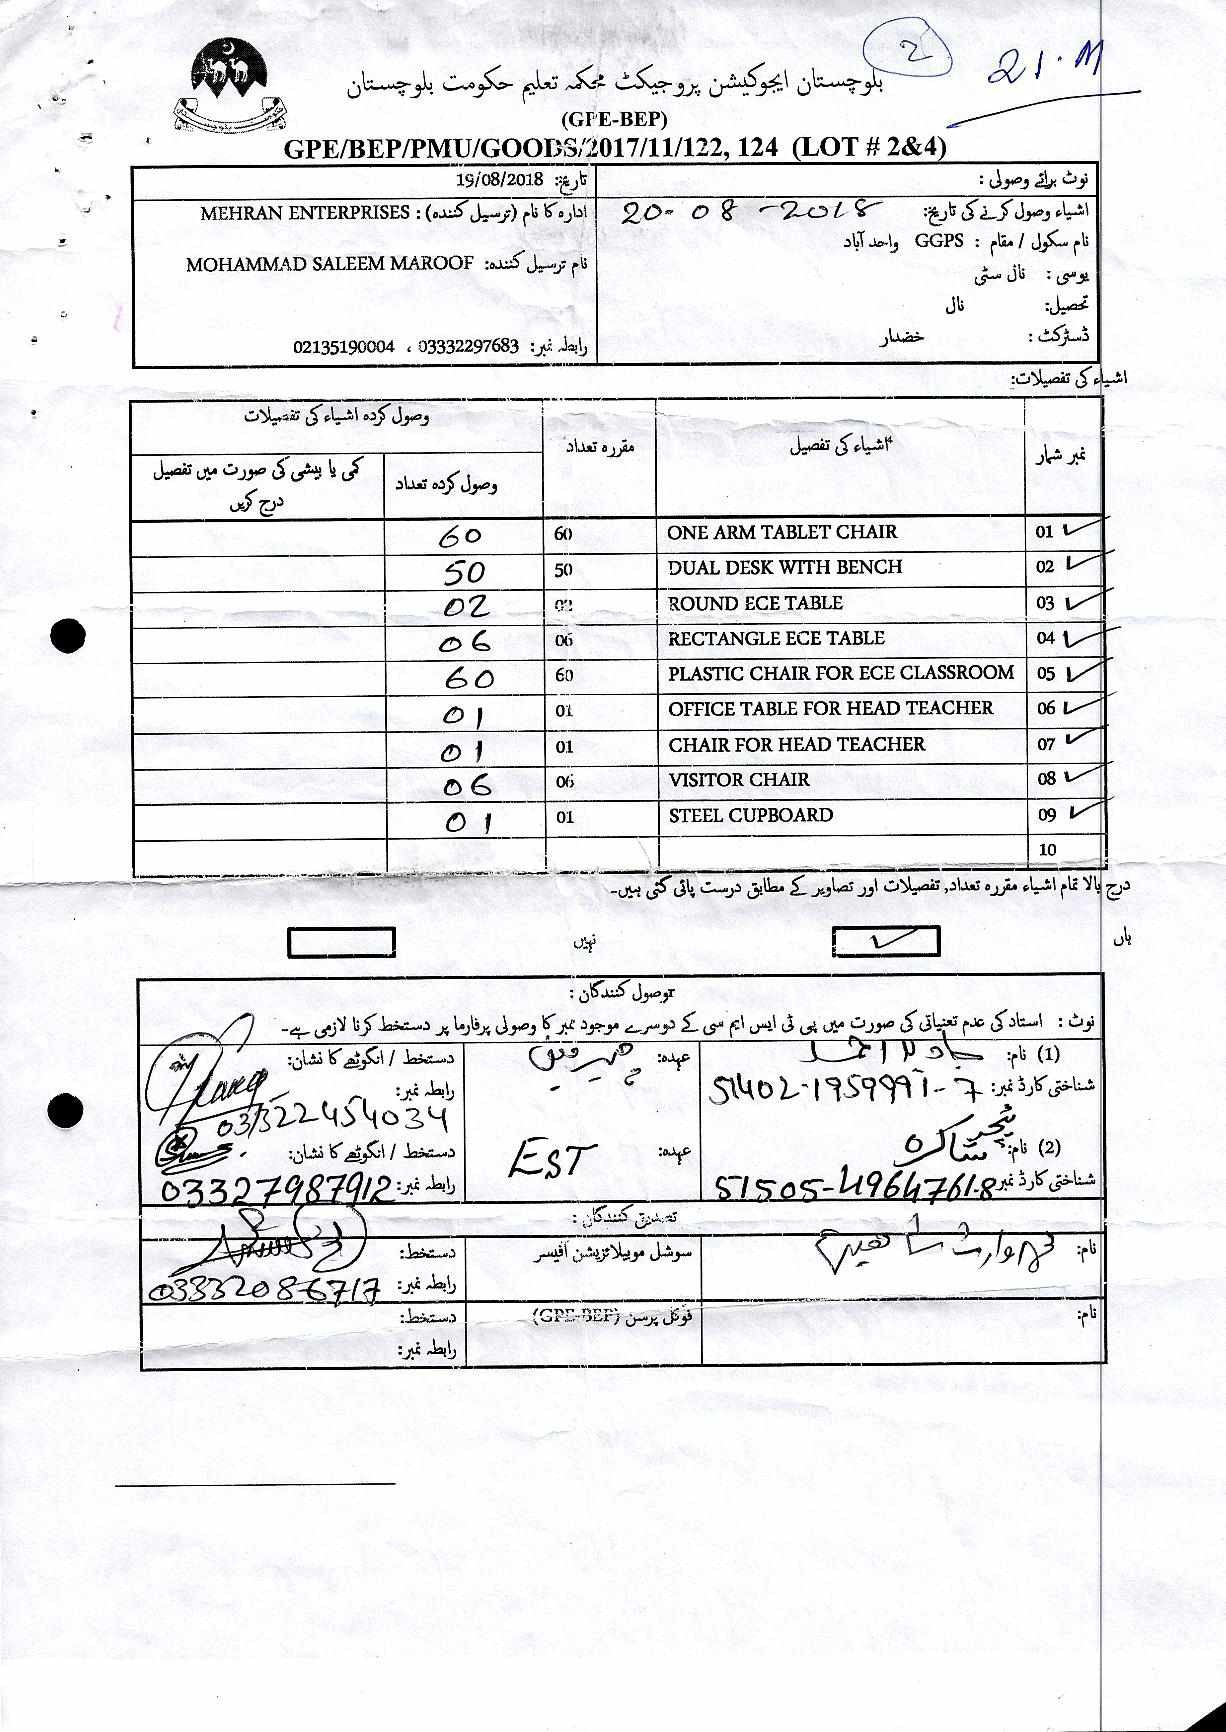 2
21.M
بلوچستان ایجوکیشن پروجیکٹ محکمہ تعلیم حکومت بلوچستان
(GPE-BEP)
GPE/BEP/PMU/GOODS/2017/11/122, 124 (LOT # 2&4)
نوٹ برائے وصولی :
اشیاء وصول کرنے کی تاریخ: 20-08-2018
نام سکول / مقام : GGPS واحد آباد
یوسی : نال سٹی
تحصیل: نال
ڈسٹرکٹ : خضدار
تاریخ: 19/08/2018
ادارہ کا نام (ترسیل کنندہ) : MEHRAN ENTERPRISES
نام ترسیل کنندہ: MOHAMMAD SALEEM MAROOF
رابطہ نمبر: 03332297683 ، 02135190004
اشیاء کی تفصیلات:
نمبر شمار اشیاء کی تفصیل مقررہ تعداد وصول کردہ اشیاء کی تفصیلات
وصول کردہ تعداد کمی یا بیشی کی صورت میں تفصیل درج کریں
01 ONE ARM TABLET CHAIR 60 60
02 DUAL DESK WITH BENCH 50 50
03 ROUND ECE TABLE 02 02
04 RECTANGLE ECE TABLE 06 06
05 PLASTIC CHAIR FOR ECE CLASSROOM 60 60
06 OFFICE TABLE FOR HEAD TEACHER 01 01
07 CHAIR FOR HEAD TEACHER 01 01
08 VISITOR CHAIR 06 06
09 STEEL CUPBOARD 01 01
10
درج بالا تمام اشیاء مقررہ تعداد, تفصیلات اور تصاویر کے مطابق درست پائی گئی ہیں۔
ہاں ✓ نہیں
وصول کنندگان :
نوٹ : استاد کی عدم تعنیاتی کی صورت میں پی ٹی ایس ایم سی کے دوسرے موجود ممبر کا وصولی پرفارما پر دستخط کرنا لازمی ہے۔
(1) نام: جاوید احمد عہدہ: چیرمین دستخط / انگوٹھے کا نشان:
شناختی کارڈ نمبر: 51402-1959991-7 رابطہ نمبر: 03322454034
(2) نام: شاکرہ ٹیچر عہدہ: EST دستخط / انگوٹھے کا نشان:
شناختی کارڈ نمبر: 51505-4964761-8 رابطہ نمبر: 03327987912
تصدیق کنندگان :
نام: سوشل موبیلائزیشن آفیسر دستخط:
رابطہ نمبر: 03332086717
نام: فوکل پرسن (GPE-BEP) دستخط:
رابطہ نمبر: